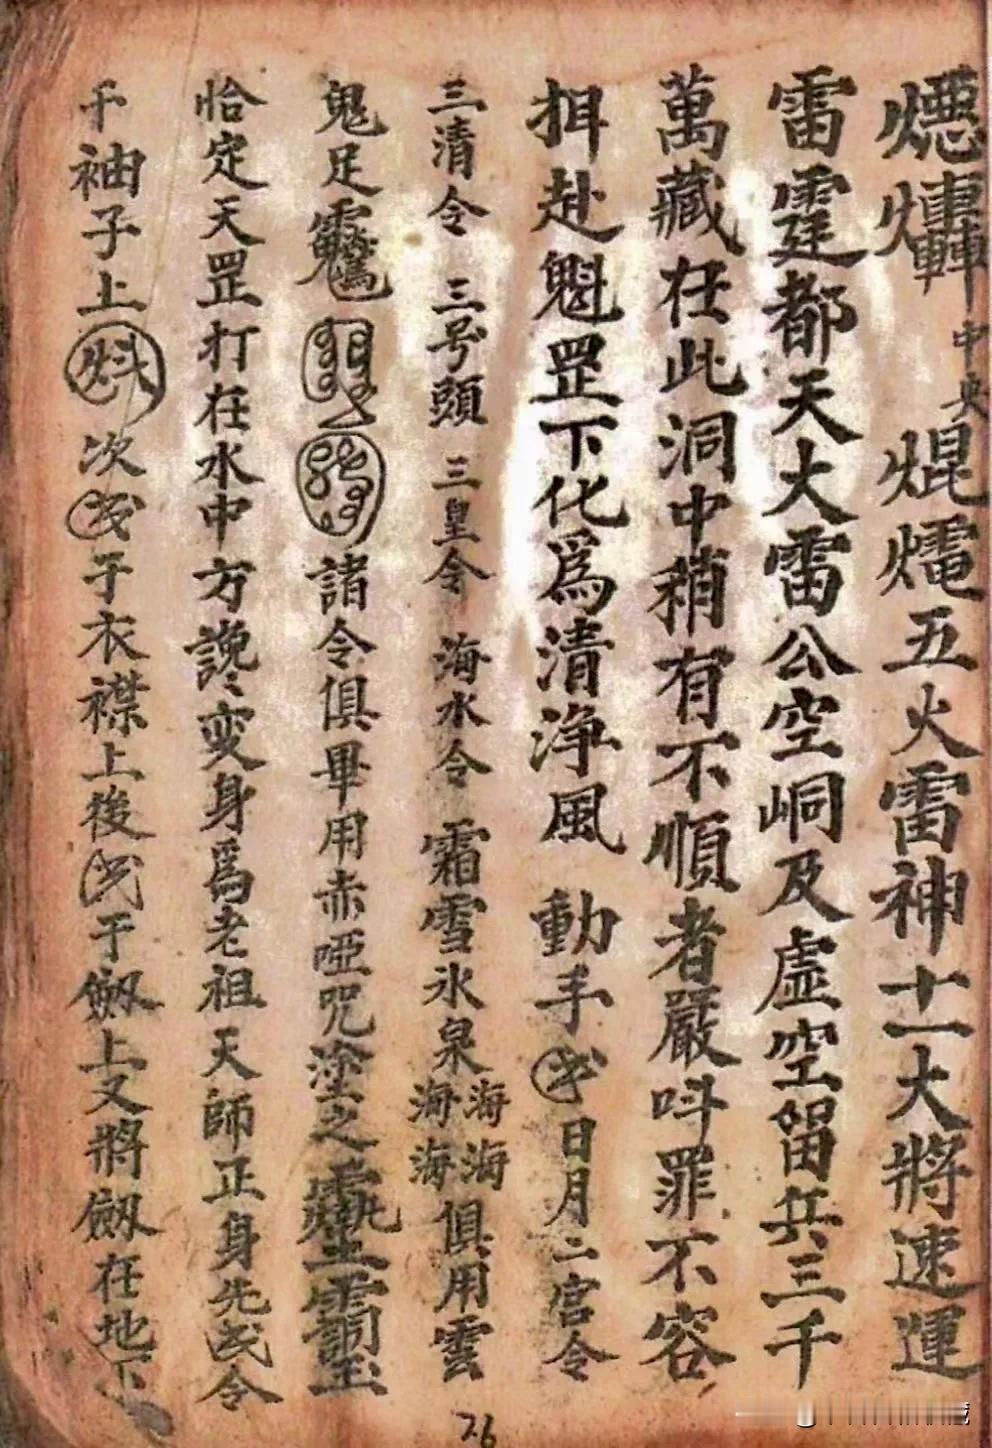 中央 五火雷神十一大將速運
雷霆都天大雷公空峒及虛空留兵三千
萬藏在此洞中稍有不順者嚴呌罪不容
捐赴魁罡下化爲清浄風 動手 日月二宮令
三清令 三号頭 三皇令 海水令 霜雪氷泉海海海海俱用雲
鬼足 諸令俱畢用赤啞咒塗之
恰定天罡打在水中方讒变身爲老祖天師正身先 令
于袖子上 次 于衣襟上後 于劔上又將劔在地下
26